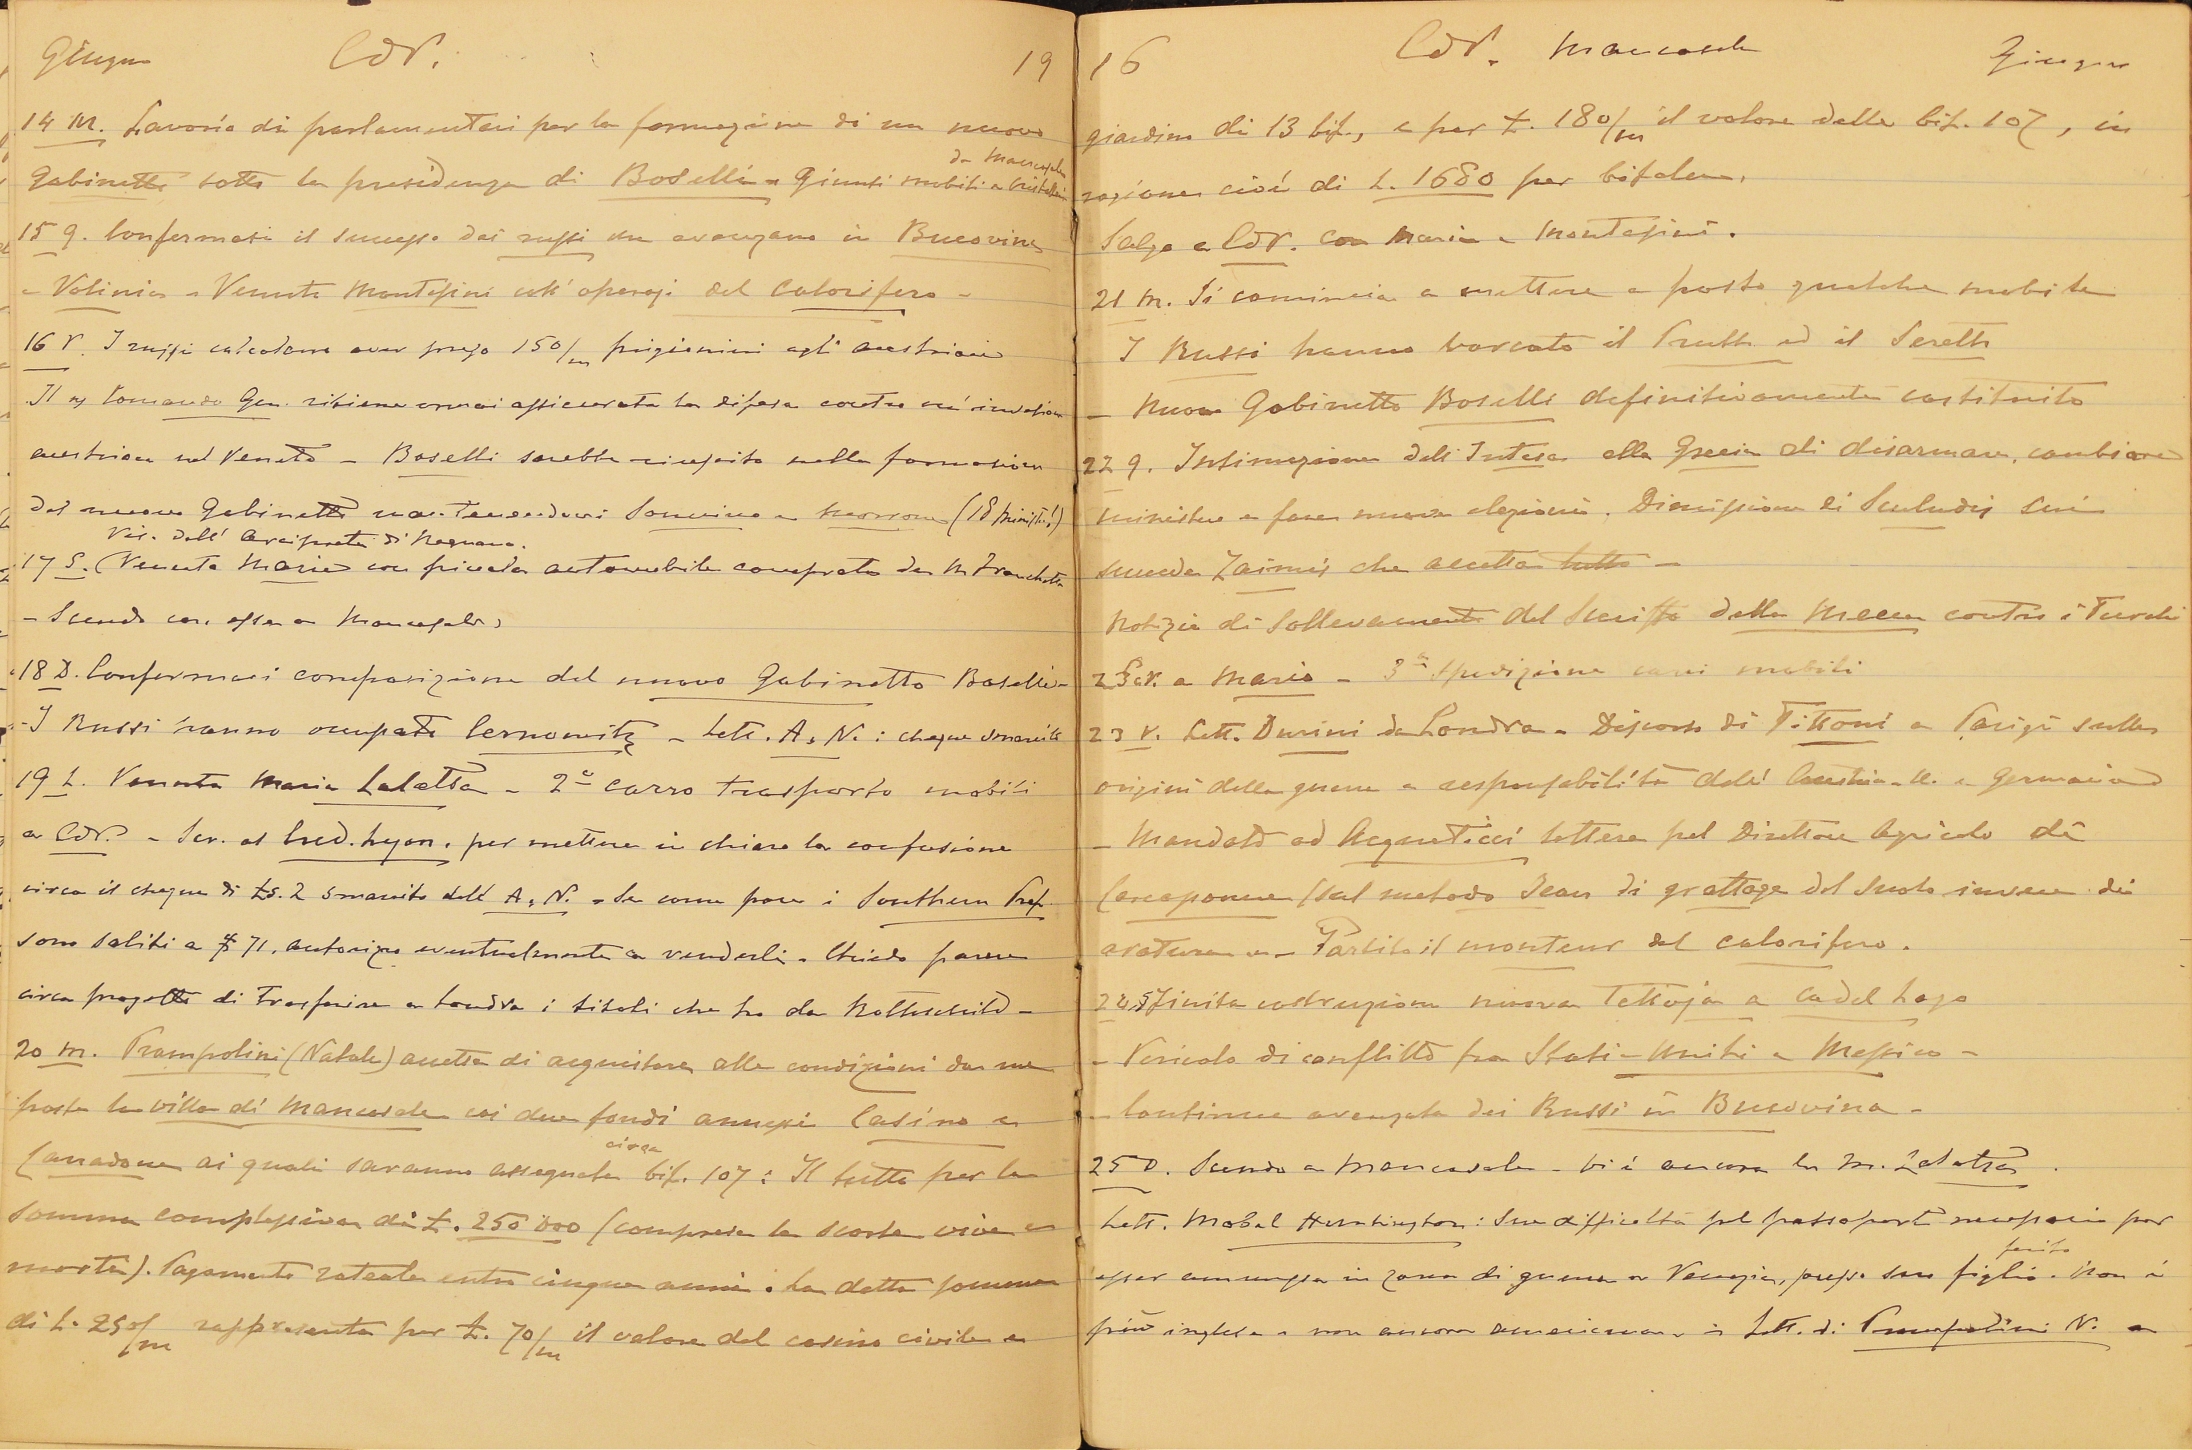 Giugno CdV. 19
14 M. Lavorio di parlamentari per la formazione di un nuovo
Gabinetto sotto la presidenza di Boselli - Giunti mobili e cristalli
da Mancasale
15 G. Confermasi il successo dei russi che avanzano in Bucovina
e Volinia - Venuto Montesini coll' operaj. del Calorifero -
16 V. I russi calcolano aver preso 150/m prigionieri agli austriaci
Il Comando Gen. ritiene ormai assicurata la difesa contro un' invasione
austriaca nel Veneto - Boselli sarebbe riuscito nella formazione
del nuovo Gabinetto mantenendovi Sonnino e (18 ministri)
Vis. dell' Arciprete di
17 S. Venuta Maria con piccola automobile comprata da M. Franchetti
- Scendo con essa a Mancasale
18 D. Confermasi composizione del nuovo Gabinetto Boselli -
- I Russi hanno occupato Cernowitz - Lett. A. N. : cheque smarrito
19 L. Venuta Maria Lalatta - 2° carro trasporto mobili
a CdV. - Scr. al Cred. Lyon. per mettere in chiaro la confusione
circa il cheque di Ls. 2 smarrito dell' A. N. - Se come pare i Southern Pref.
sono saliti a $ 71, autorizzo eventualmente a venderli - Chiedo parere
circa progetto di trasferire a Londra i titoli che ho da Rothschild -
20 M. Prampolini (Natale) accetta di acquistare alle condizioni da me
poste la villa di Mancasale coi due fondi annessi Casino e
Canadone ai quali saranno assegnate circa bif. 107 : Il tutto per la
somma complessiva di L. 250 000 (compresa la scorta viva e
morta). Pagamento rateale entro cinque anni. La detta somma
di L. 250/m rappresenta per L. 70/m il valore del casino civile e
16 CdV. Mancasale Giugno
giardino di 13 bif., e per L. 180/m il valore delle bif. 107, in
ragione cioè di L. 1680 per bifolca.
Salgo a CdV. con Maria e Montesini.
21 M. Si comincia a mettere a posto qualche mobile
I Russi hanno varcato il Pruth ed il Sereth
- Nuovo Gabinetto Boselli definitivamente costituito
22 G. Intimazione dell' Intesa alla Grecia di disarmare, cambiare
ministero e fare nuove elezioni. Dimissione di Sculudis cui
succede Zaimis che accetta tutto -
Notizie di Sollevamento del Sceriffo della Mecca contro i Turchi
Scr. a Maria - 3a spedizione carri mobili
23 V. Lett. Durini da Londra - Discorso di Tittoni a Parigi sulle
origini della guerra e responsabilità dell' Austria-U. e Germania
- Mandato ad Acquaticci lettera pel Direttore Agricolo di
(sul metodo Jean di grattage del suolo invece di
aratura - Partito il monteur del calorifero.
24 S. Finita costruzione nuova Tettoja a Ca del Lago
- Pericolo di conflitto fra Stati-Uniti e Messico -
- Continua avanzata dei Russi in Bucovina -
25 D. Scendo a Mancasale - Vi è ancora la M. Lalatta.
Lett. Mabel Huntington : Sue difficoltà pel passaporto necessario per
esser ammessa in zona di guerra a Venezia, presso suo figlio ferito. Non è
più inglese e non ancora americana - Lett. di Prampolini N. a